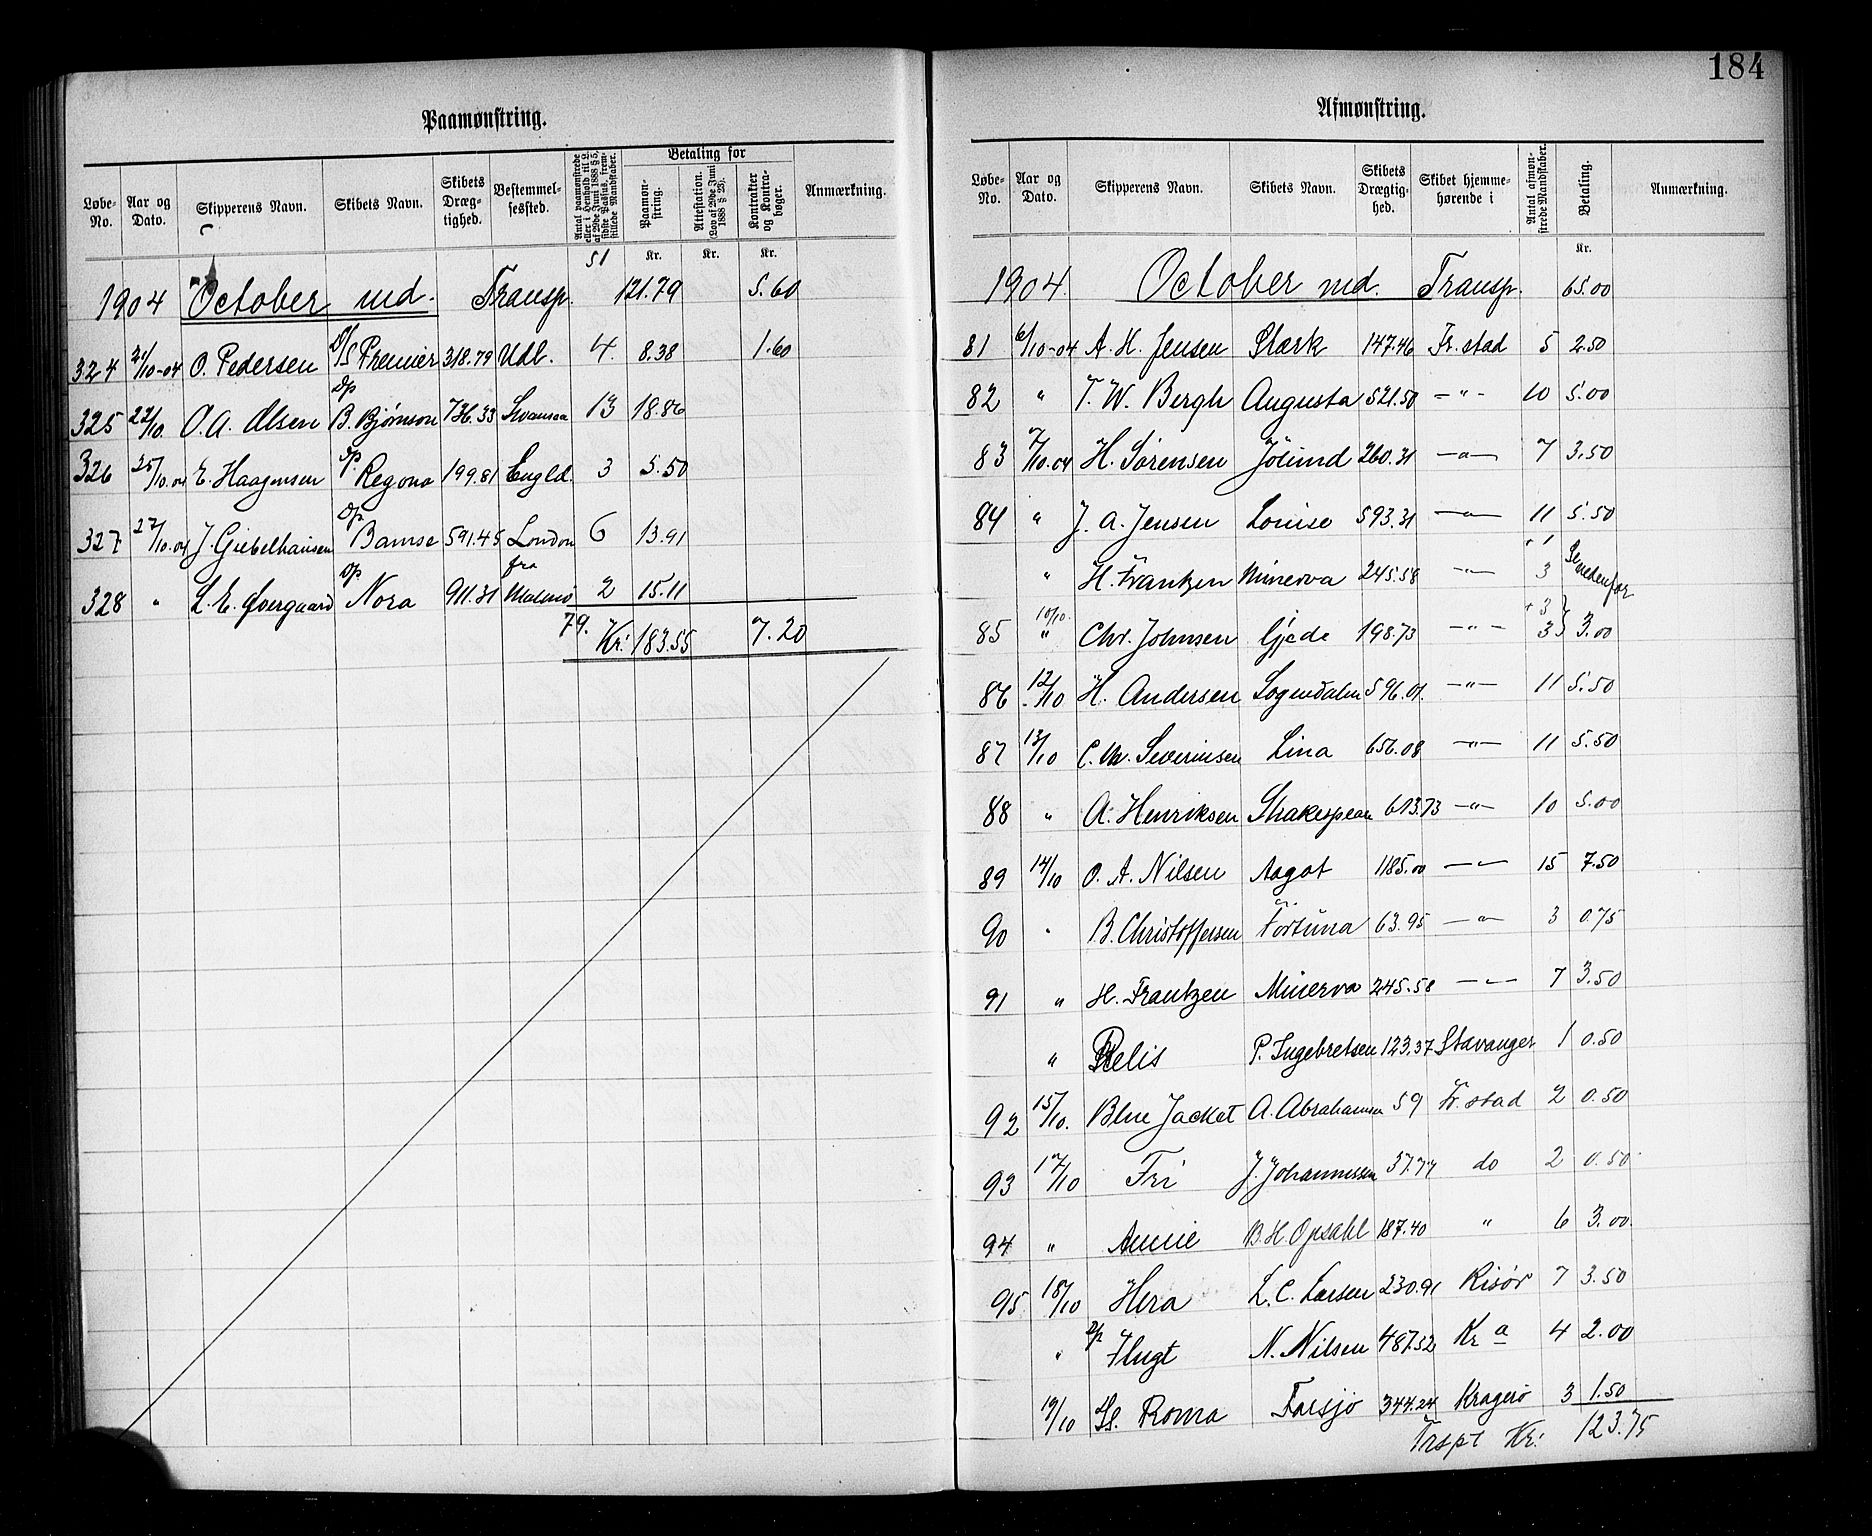 184
Paamønstring.
Løbe-No. | Aar og Dato. | Skipperens Navn. | Skibets Navn. | Skibets Dræg-tighed. | Bestemmel-sessted. | Antal paamønstrede eller i Henhold til L. af 29de Juni 1888 § 5, sidste Passus, frem-stillede Mandskaber. | Betaling for | Paamøn-string. | Attestation. (Lov af 29de Juni 1888 § 23). | Kontrakter og Kontra-bøger. | Anmærkning.
51 | Kr. | Kr. | Kr.
1904 October md. Transp. 121.79 5.60
324 21/10-04 O. Pedersen D/S Premier 318.79 Udl. 4. 8.38 1.60
325 22/10. O. A. Olsen Dp B. Bjørnson 736.33 Swansea 13 18.86
326 25/10.04 E. Haagensen Dp. Regona 199.81 Engld. 3 5.50
327 27/10.04 J. Giebelhausen Dp Bamse 591.45 London 6 13.91
328 " L. E. Øvergaard Dp Nora 911.31 fra Malmö 2 15.11
79. Kr: 183.55 7.20
Afmønstring.
Løbe-No. | Aar og Dato. | Skipperens Navn. | Skibets Navn. | Skibets Drægtig-hed. | Skibet hjemme-hørende i | Antal afmøn-strede Mandskaber. | Betaling. | Anmærkning.
Kr.
1904. October md. Transp. 65.00
81 6/10-04 A. H. Jensen Stærk 147.46 Fr.stad 5 2.50
82 " T. W. Bergh Augusta 521.50 -"- 10 5.00
83 7/10.04 H. Sörensen Jölund 260.31 -"- 7 3.50
84 " J. A. Jensen Louise 593.31 -"- 11 5.50
" H. Frantzen Minerva 245.58 -"- +1 3 Se nedenfor
85 10/10. " Chr. Johnsen Gjede 198.73 -"- +3 3} 3.00
86 12/10 H. Andersen Sogndalen 596.01. -"- 11 5.50
87 13/10 C. M. Severinsen Lina 656.08 -"- 11 5.50
88 " A. Henriksen Shakespear 613.73 -"- 10 5.00
89 14/10 O. A. Nilsen Aagot 1185.00 -"- 15 7.50
90 " B. Christoffersen Fortuna 63.95 -"- 3 0.75
91 " H. Frantzen Minerva 245.58 -"- 7 3.50
" Relis P. Ingebretsen 123.37 Stavanger 1 0.50
92 15/10. Blue Jacket A. Abrahamsen 59 Fr.stad 2 0.50
93 17/10 Fri J. Johannessen 37.77 do 2 0.50
94 " Annie B. H. Opsahl 187.40 " 6 3.00.
95 18/10 Hera L. C. Larsen 230.91 Risör 7 3.50
" Dp Flugt N. Nilsen 487.52 Kra 4 2.00
19/10 Ds. Roma Farsjö 344.24 Kragerö 3 1.50
Trspt Kr: 123.75